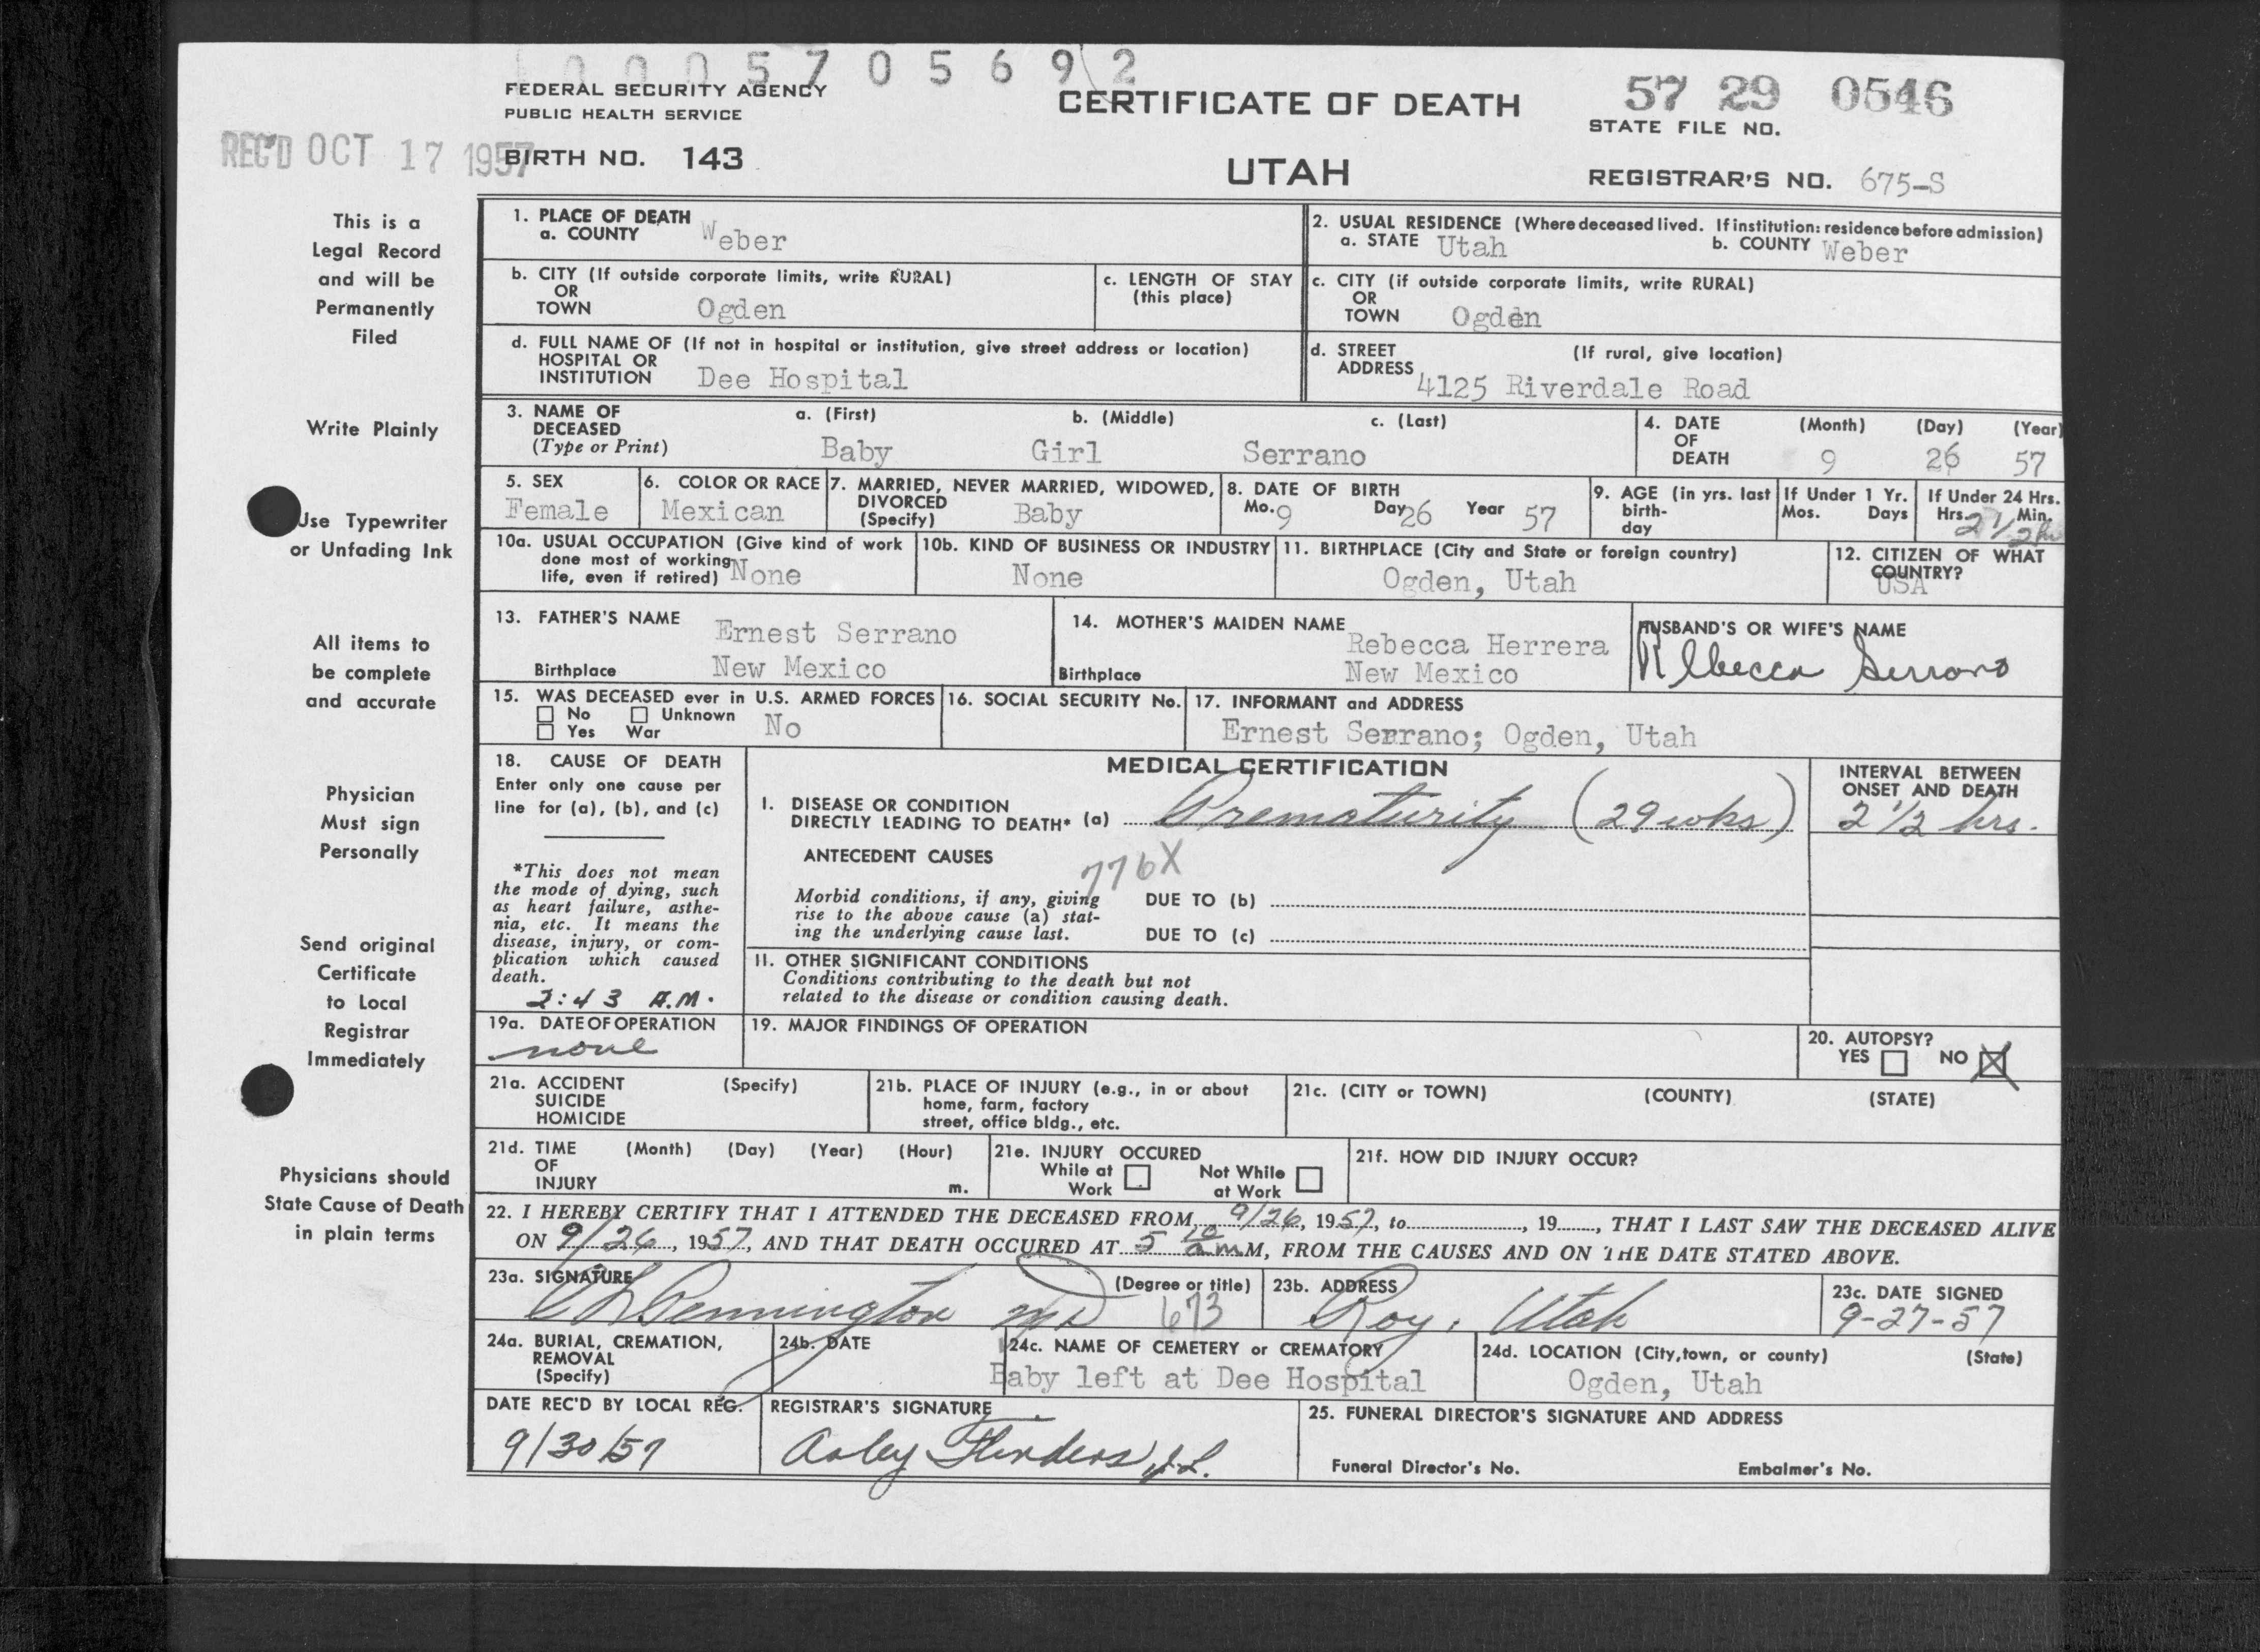 1 0 0 0 5 7 0 5 6 9 2
FEDERAL SECURITY AGENCY
PUBLIC HEALTH SERVICE
CERTIFICATE OF DEATH
57 29 0546
STATE FILE NO.
REC'D OCT 17 1957
BIRTH NO. 143
UTAH
REGISTRAR'S NO. 675-S
This is a
Legal Record
and will be
Permanently
Filed
Write Plainly
Use Typewriter
or Unfading Ink
All items to
be complete
and accurate
Physician
Must sign
Personally
Send original
Certificate
to Local
Registrar
Immediately
Physicians should
State Cause of Death
in plain terms
1. PLACE OF DEATH
a. COUNTY Weber
2. USUAL RESIDENCE (Where deceased lived. If institution: residence before admission)
a. STATE Utah b. COUNTY Weber
b. CITY (If outside corporate limits, write RURAL)
OR
TOWN Ogden
c. LENGTH OF STAY
(this place)
c. CITY (if outside corporate limits, write RURAL)
OR
TOWN Ogden
d. FULL NAME OF (If not in hospital or institution, give street address or location)
HOSPITAL OR
INSTITUTION Dee Hospital
d. STREET (If rural, give location)
ADDRESS 4125 Riverdale Road
3. NAME OF DECEASED
(Type or Print)
a. (First) b. (Middle) c. (Last)
Baby Girl Serrano
4. DATE OF DEATH
(Month) (Day) (Year)
9 26 57
5. SEX
Female
6. COLOR OR RACE
Mexican
7. MARRIED, NEVER MARRIED, WIDOWED,
DIVORCED
(Specify) Baby
8. DATE OF BIRTH
Mo. 9 Day 26 Year 57
9. AGE (in yrs. last
birth-
day
If Under 1 Yr.
Mos. Days
If Under 24 Hrs.
Hrs. Min.
2 1/2 hr
10a. USUAL OCCUPATION (Give kind of work
done most of working
life, even if retired) None
10b. KIND OF BUSINESS OR INDUSTRY
None
11. BIRTHPLACE (City and State or foreign country)
Ogden, Utah
12. CITIZEN OF WHAT
COUNTRY?
USA
13. FATHER'S NAME Ernest Serrano
Birthplace New Mexico
14. MOTHER'S MAIDEN NAME Rebecca Herrera
Birthplace New Mexico
HUSBAND'S OR WIFE'S NAME
Rebecca Serrano
15. WAS DECEASED ever in U.S. ARMED FORCES
No Unknown
Yes War
No
16. SOCIAL SECURITY No.
17. INFORMANT and ADDRESS
Ernest Serrano; Ogden, Utah
18. CAUSE OF DEATH
Enter only one cause per
line for (a), (b), and (c)
*This does not mean
the mode of dying, such
as heart failure, asthe-
nia, etc. It means the
disease, injury, or com-
plication which caused
death.
2:43 A.M.
MEDICAL CERTIFICATION
I. DISEASE OR CONDITION
DIRECTLY LEADING TO DEATH* (a) Prematurity (29 wks)
ANTECEDENT CAUSES
776X
Morbid conditions, if any, giving
rise to the above cause (a) stat-
ing the underlying cause last.
DUE TO (b)
DUE TO (c)
II. OTHER SIGNIFICANT CONDITIONS
Conditions contributing to the death but not
related to the disease or condition causing death.
INTERVAL BETWEEN
ONSET AND DEATH
2 1/2 hrs.
19a. DATE OF OPERATION
none
19. MAJOR FINDINGS OF OPERATION
20. AUTOPSY?
YES NO X
21a. ACCIDENT (Specify)
SUICIDE
HOMICIDE
21b. PLACE OF INJURY (e.g., in or about
home, farm, factory
street, office bldg., etc.
21c. (CITY or TOWN) (COUNTY) (STATE)
21d. TIME (Month) (Day) (Year) (Hour)
OF
INJURY m.
21e. INJURY OCCURED
While at Work
Not While at Work
21f. HOW DID INJURY OCCUR?
22. I HEREBY CERTIFY THAT I ATTENDED THE DECEASED FROM 9/26, 1957, to , 19 , THAT I LAST SAW THE DECEASED ALIVE
ON 9/26, 1957, AND THAT DEATH OCCURED AT 5 10 am M, FROM THE CAUSES AND ON THE DATE STATED ABOVE.
23a. SIGNATURE (Degree or title)
Pennington MD 673
23b. ADDRESS
Roy, Utah
23c. DATE SIGNED
9-27-57
24a. BURIAL, CREMATION,
REMOVAL
(Specify)
24b. DATE
24c. NAME OF CEMETERY or CREMATORY
Baby left at Dee Hospital
24d. LOCATION (City, town, or county) (State)
Ogden, Utah
DATE REC'D BY LOCAL REG.
9/30/57
REGISTRAR'S SIGNATURE
Flinders
25. FUNERAL DIRECTOR'S SIGNATURE AND ADDRESS
Funeral Director's No. Embalmer's No.